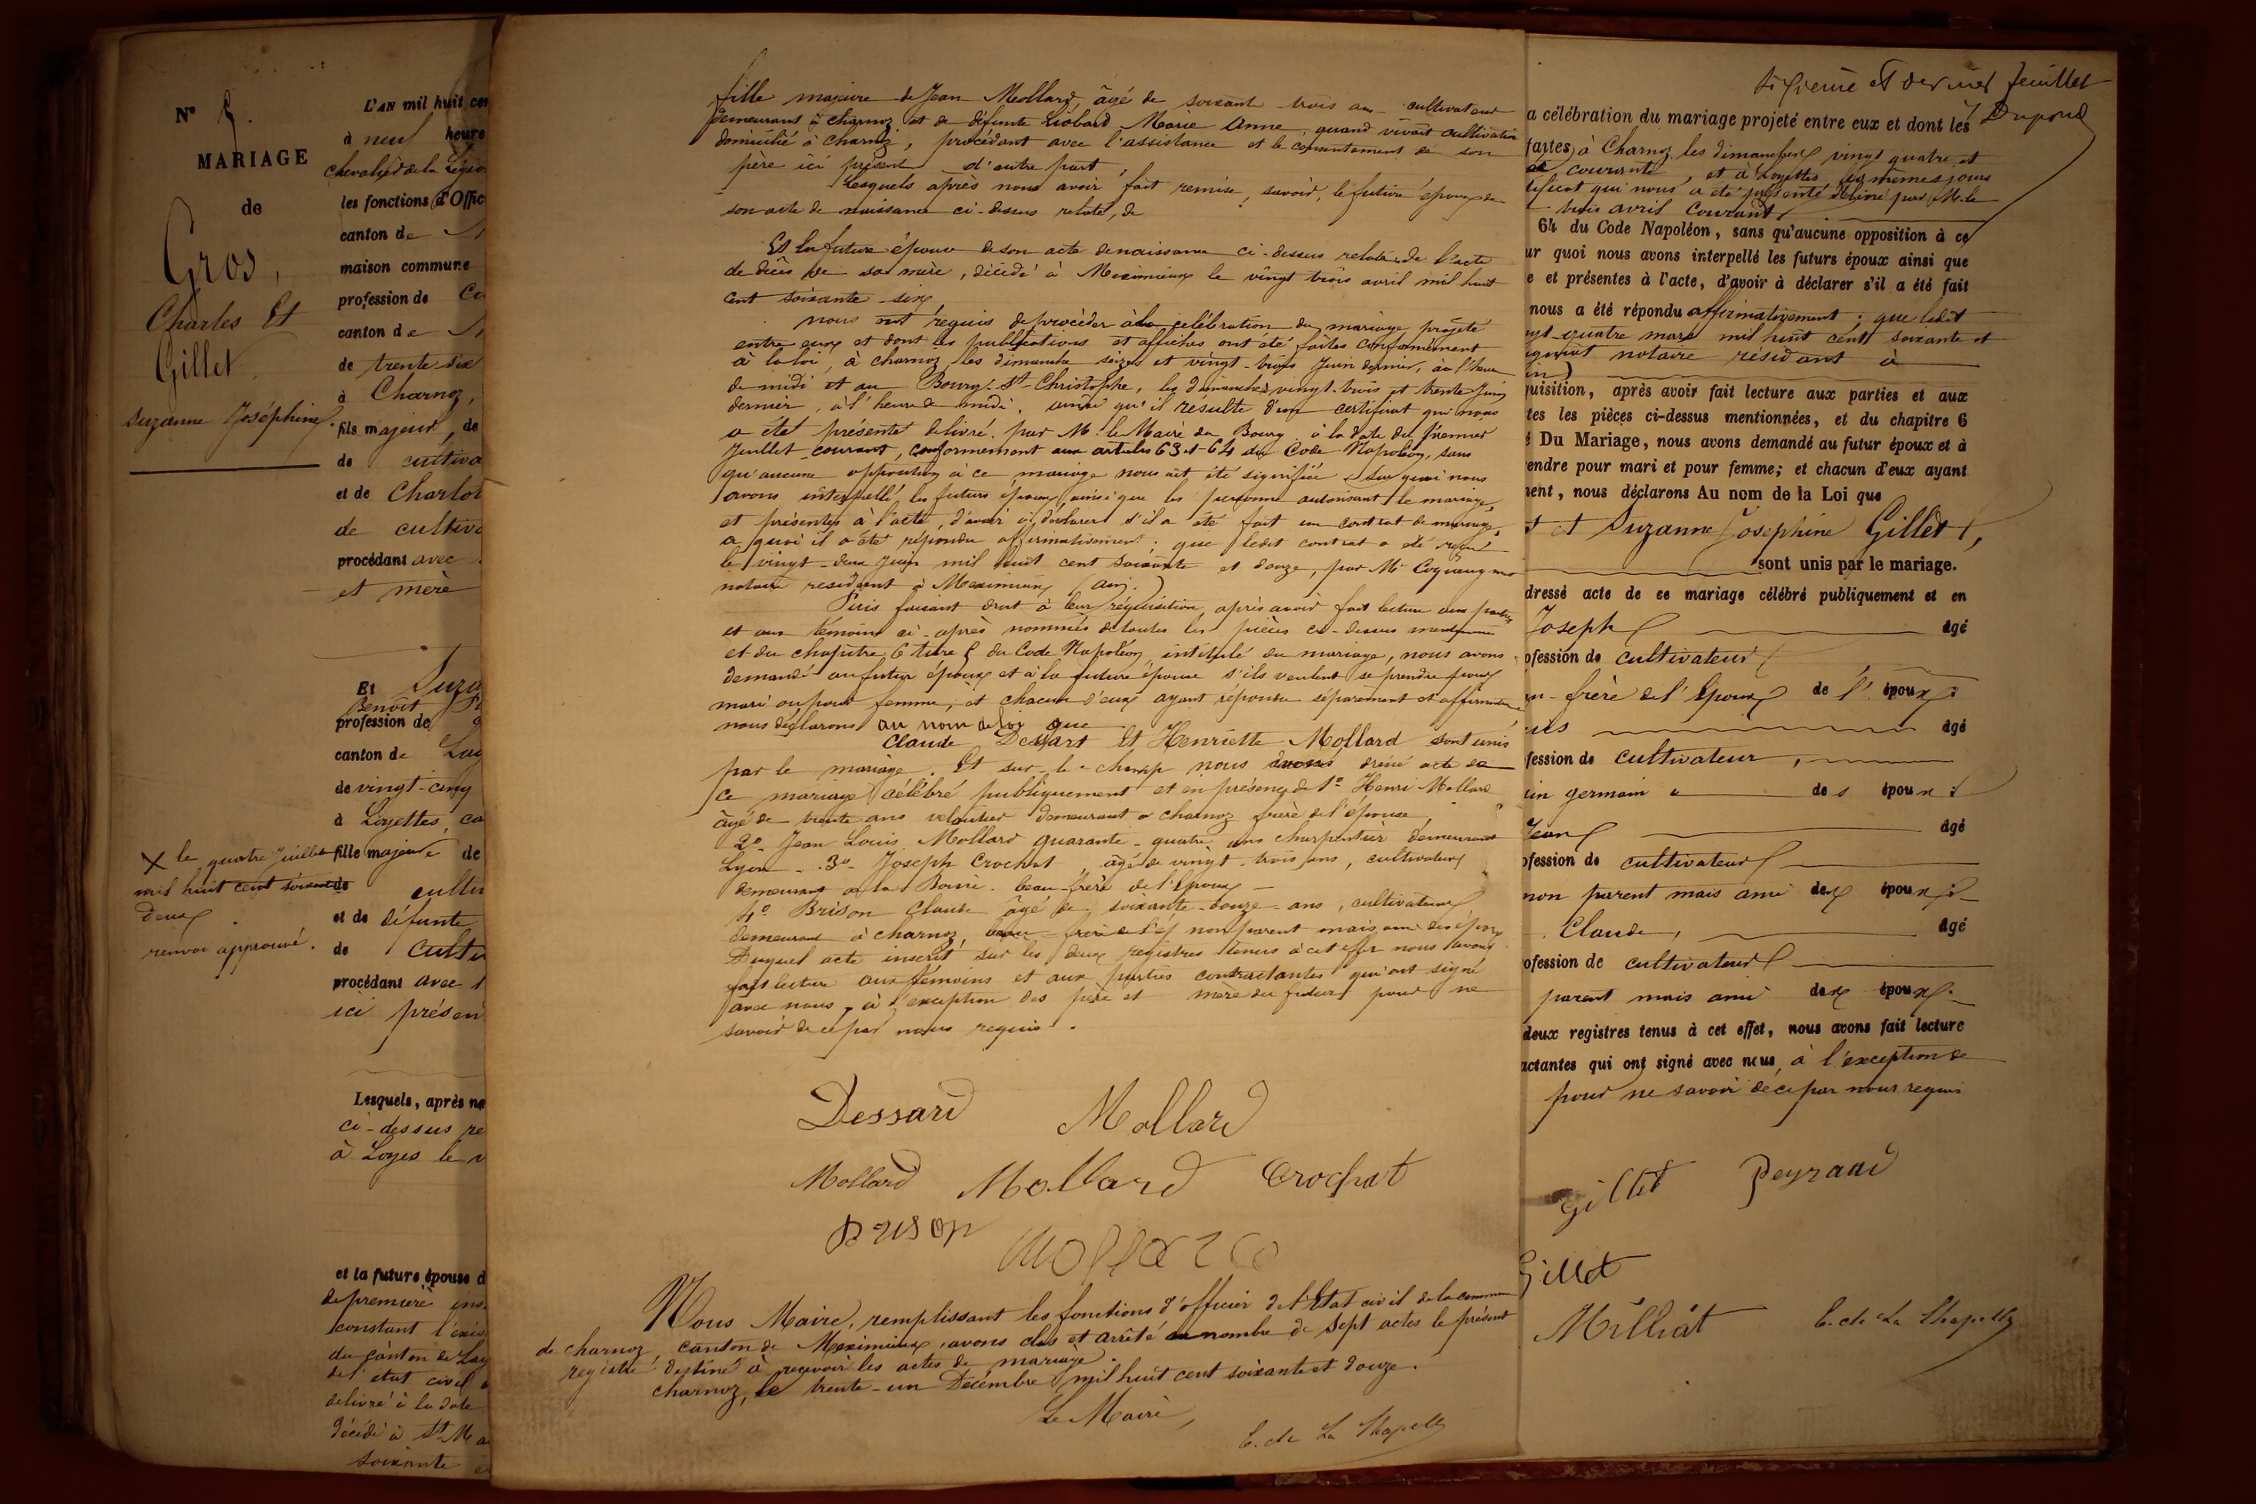 N° 5.
MARIAGE
de
Gros,
Charles Et
Gillet
Suzanne Joséphine.
X le quatre Juillet
mil huit cent soixante
deux
renvoi approuvé.
L'AN mil huit cen
à neuf heure
Chevalier de la Légio
les fonctions d'Offic
canton de
maison commune
profession de
canton de
de trente-six
à Charnoz,
fils majeur, de
de cultiva
et de Charlot
de cultiv
procédant avec
et mère
Et Suza
Benoit
profession de
canton de Lag
de vingt-cinq
à Loyettes, ca
fille majeure de
de cultiv
et de défunte
de cultiv
procédant avec
ici présen
Lesquels, après no
ci-dessus re
à Loyes le v
et la future épouse d
de première ins
constant l'
du canton de Lag
de l'état civil
délivré à la date
décédé à St Ma
soixante
fille majeure de Jean Mollard, âgé de soixante trois ans cultivateur
demeurant à charnoz et de défunte Liobard Marie Anne, quand vivait cultivatrice
domiciliée à charnoz, procédant avec l'assistance et le consentement de son
père ici présent d'autre part,
Lesquels après nous avoir fait remise, savoir, le future époux de
son acte de naissance ci-dessus relaté, de
Et la future épouse de son acte de naissance ci-dessus relaté, de l'acte
de décès de sa mère, décédé à Meximieux le vingt trois avril mil huit
cent soixante-six,
nous ont requis de procéder à la célébration du mariage projeté
entre eux et dont les publications et affiches ont été faites conformément
à la loi, à charnoz, les dimanche seize et vingt-trois Juin dernier, à l'heure
de midi et au Bourg-St-Christophe, les dimanches vingt-trois et trente Juin
dernier, à l'heure de midi, ainsi qu'il résulte d'un certificat qui nous
a été présenté délivré par Mr le Maire du Bourg à la date du premier
Juillet courant, conformement aux articles 63 et 64 du Code Napoléon, sans
qu'aucune opposition à ce mariage nous ait été signifiée, sur quoi nous
avons interpellé les futurs époux ainsi que les personne autorisant le mariage
et présentes à l'acte, d'avoir à déclarer s'il a été fait un contrat de mariage,
a quoi il a été répondu affirmativement; que ledit contrat a été reçu
le vingt-deux Juin mil huit cent soixante et douze, par Me
notaire residant à Meximieux (ain.)
Puis faisant droit à leur réquisition, après avoir fait lecture aux parties
et aux témoins ci-après nommés de toutes les pièces ci-dessus mentionnés
et du chapitre 6 titre 5 du Code Napoléon intitulé du mariage, nous avons
demandé au futur époux et à la future épouse s'ils veulent se prendre pour
mari ou pour femme, et chacun d'eux ayant répondu séparément et affirmativement
nous déclarons au nom de loi que
Claude Dessart Et Henriette Mollard sont unis
par le mariage. Et sur-le-champ nous avons dressé acte de
ce mariage célébré publiquement et en présence de 1° Henri Mollard
âgé de trente ans demeurant à charnoz frère de l'épouse
2° Jean Louis Mollard quarante-quatre ans charpentier demeurant
Lyon - 3° Joseph Crochat âgé de vingt-trois ans, cultivateur
demeurant à la Boisse, beau-frère de l'époux
4° Brison Claude âgé de soixante-douze ans, cultivateur
demeurant à charnoz, non parent mais ami des époux
Duquel acte inscrit sur les deux registres tenus à cet effet nous avons
fait lecture aux témoins et aux parties contractantes qui ont signé
avec nous, à l'exception des père et mère du futur pour ne
savoir de ce par nous requis.
Dessard Mollard
Mollard Mollard Crochat
Brison
Mollard
Nous Maire, remplissant les fonctions d'officier de l'état civil de la commune
de charnoz, canton de Meximieux, avons clos et arrêté au nombre de sept actes le présent
registre destiné à recevoir les actes de mariage.
charnoz, le trente-un Décembre mil huit cent soixante et douze.
Le Maire,
E. de La Chapelle
Sixième et dernier feuillet
Dupond
a célébration du mariage projeté entre eux et dont les
faites à Charnoz les dimanches vingt quatre et
courante, et à Loyettes les mêmes jours
tificat qui nous a été présenté délivré par M. le
trois avril courant
64 du Code Napoléon, sans qu'aucune opposition à ce
ur quoi nous avons interpellé les futurs époux ainsi que
e et présentes à l'acte, d'avoir à déclarer s'il a été fait
nous a été répondu affirmativement; que ledit
ngt-quatre mars mil huit cent soixante et
notaire résidant à
in)
quisition, après avoir fait lecture aux parties et aux
tes les pièces ci-dessus mentionnées, et du chapitre 6
é Du Mariage, nous avons demandé au futur époux et à
endre pour mari et pour femme; et chacun d'eux ayant
ment, nous déclarons Au nom de la Loi que
et Suzanne Joséphine Gillet,
sont unis par le mariage.
dressé acte de ce mariage célébré publiquement et en
Joseph âgé
ofession de cultivateur
frère de l'époux de l'époux
âgé
fession de cultivateur,
in germain des époux
Jean âgé
ofession de cultivateur
non parent mais ami des époux
Claude, âgé
ofession de cultivateur
parent mais ami des époux
deux registres tenus à cet effet, nous avons fait lecture
actantes qui ont signé avec nous, à l'exception de
pour ne savoir de ce par nous requis
Gillet Peyraud
Gillet
Milliat E. de La Chapelle